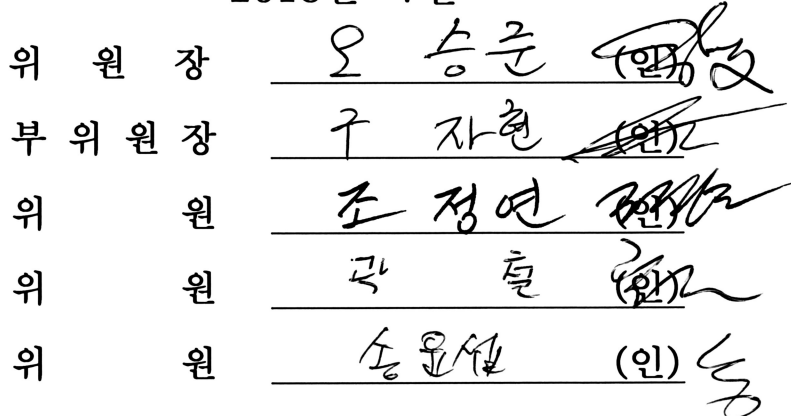 위 원 장 오 승준 (인)
부 위 원 장 구 자현 (인)
위 원 조 정연 (인)
위 원 곽 훈 (인)
위 원 송윤섭 (인)